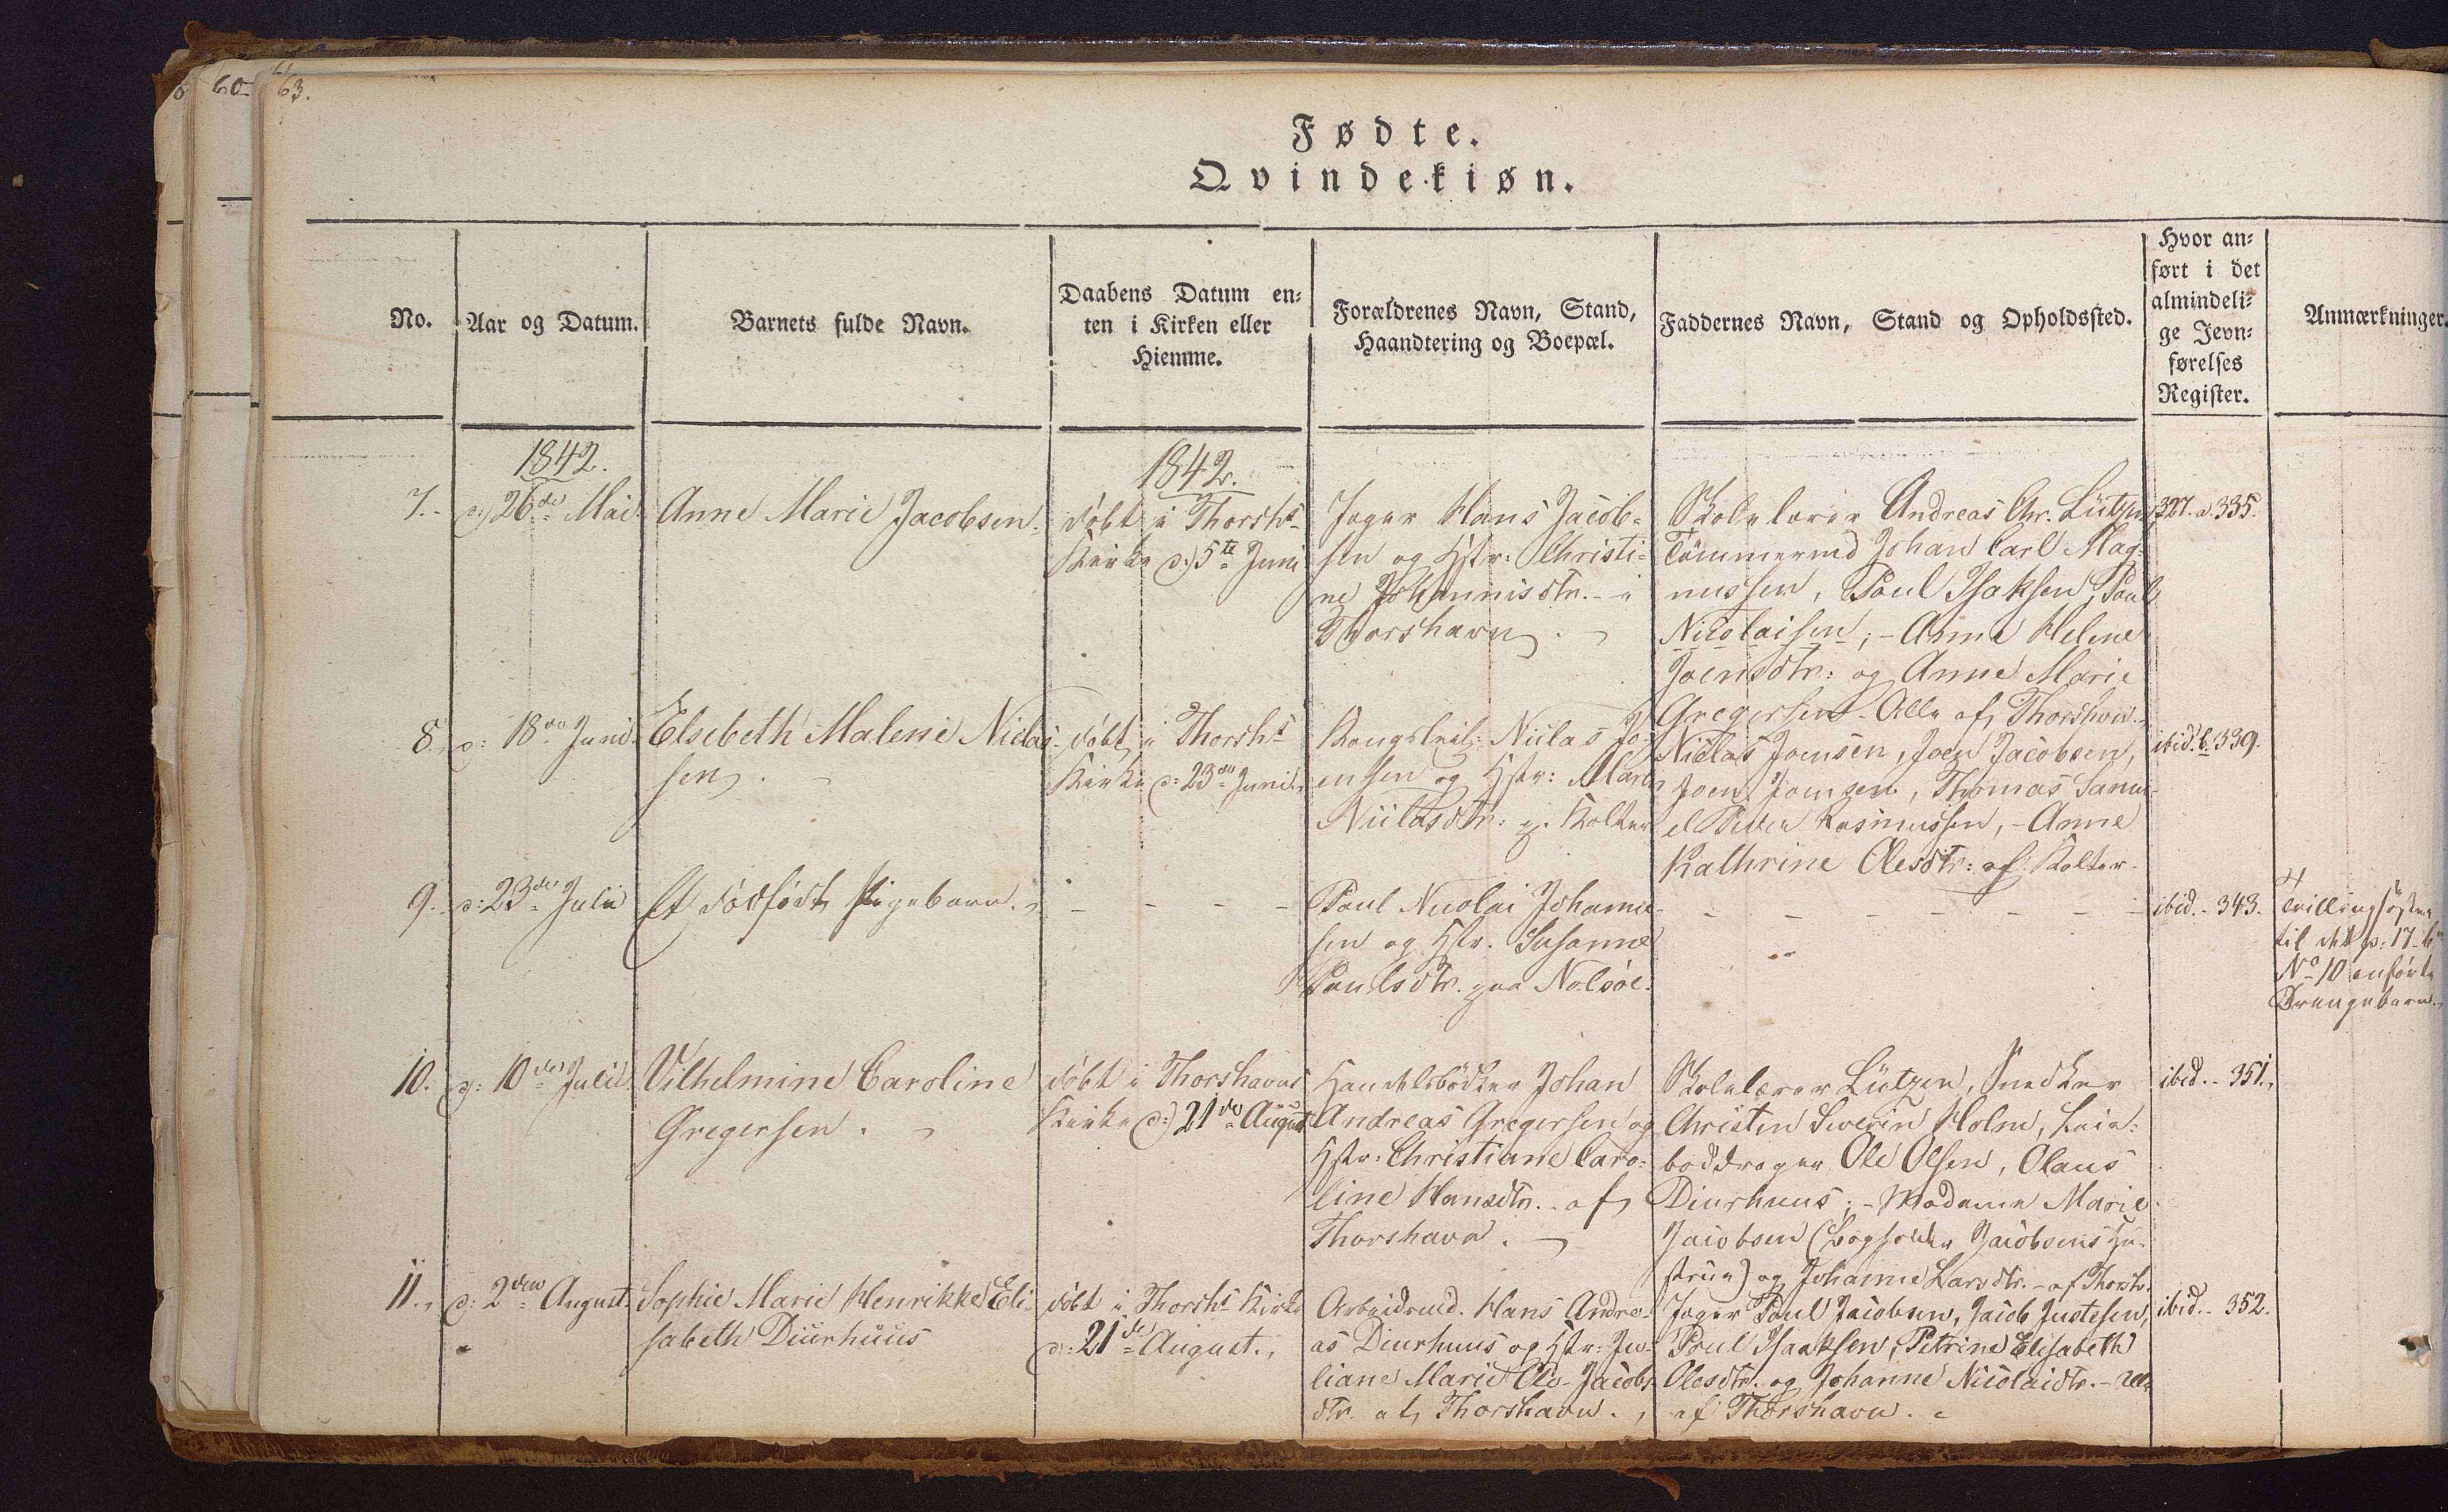 60
63.
Fødte.
Qvindekiøn.
No.
Aar og Datum.
Barnets fulde Navn.
Daabens Datum en-
ten i Kirken eller
Hiemme.
Forældrenes Navn, Stand,
Haandtering og Boepæl.
Faddernes Navn, Stand og Opholdssted.
Hvor an-
ført i det
almindeli-
ge Jevn-
førelses
Register.
Anmærkninger.
1842.
1842.
7.-
d: 26de Mai.
Anne Marie Jacobsen.
døbt i Thorshs
Kirke d: 5te Juni
Jæger Hans Jacob-
sen og Hstr: Christi-
ne Johannisdtr. - i
Thorshavn.
Skolelærer Andreas Chr. Lützen
Tömmermd Johan Carl Mag-
nussen, Poul Isaksen, Poul
Nicolaisen; - Anne Helene
Joensdtr: og Anne Marie
Gregersen - Alle af Thorshavn.
327. a. 335.
8.
d: 18de Juni.
Elsebeth Malene Niclas-
sen.
døbt i Thorshs
Kirke d: 23de Juni.
Kongsleil: Niclas Jo-
ensen og Hstr: Maren
Niclasdtr: p. Kolter
Niclas Joensen, Joen Jacobsen,
Joen Joensen, Thomas Samu-
el Peder Rasmussen, - Anne
Kathrine Olesdtr: af Kolter.
ibid. b. 339.
9.
d: 23de Julii
Et dødfødt Pigebarn.
Poul Nicolai Johanne-
sen og Hstr. Susanne
Poulsdtr. paa Nolsöe.
ibid. - 343.
Tvillingsøster
til det p: 17-b
No 10 anførte
Drengebarn.
10.
d: 10de Julii.
Vilhelmine Caroline
Gregersen.
døbt i Thorshavns
Kirke d: 21de August
Handelsbødker Johan
Andreas Gregersen og
Hstr: Christiane Caro-
line Hansdtr. - af
Thorshavn.
Skolelærer Lützen, Snedker
Christen Severin Holm, Krie-
boddrager Ole Olsen, Olaus
Diurhuus; - Madame Marie
Jacobsen (Bogholder Jacobsens Hu-
strue) og Johanne Larsdtr. - af Thorsh.
ibid. - 351.
11.
d: 2den August.
Sophie Marie Henrikke Eli-
sabeth Diurhuus
døbt i Thorshs Kirke
d: 21de August.
Arbeidsmd. Hans Andre-
as Diurhuus og Hstr: Ju-
liane Marie Ole-Jacobs-
dtr. af Thorshavn.
Jæger Poul Jacobsen, Jacob Justesen,
Poul Isaaksen, Petrine Elisabeth
Olesdtr. og Johanne Nicolaidtr. - Alle
af Thorshavn.
ibid. - 352.